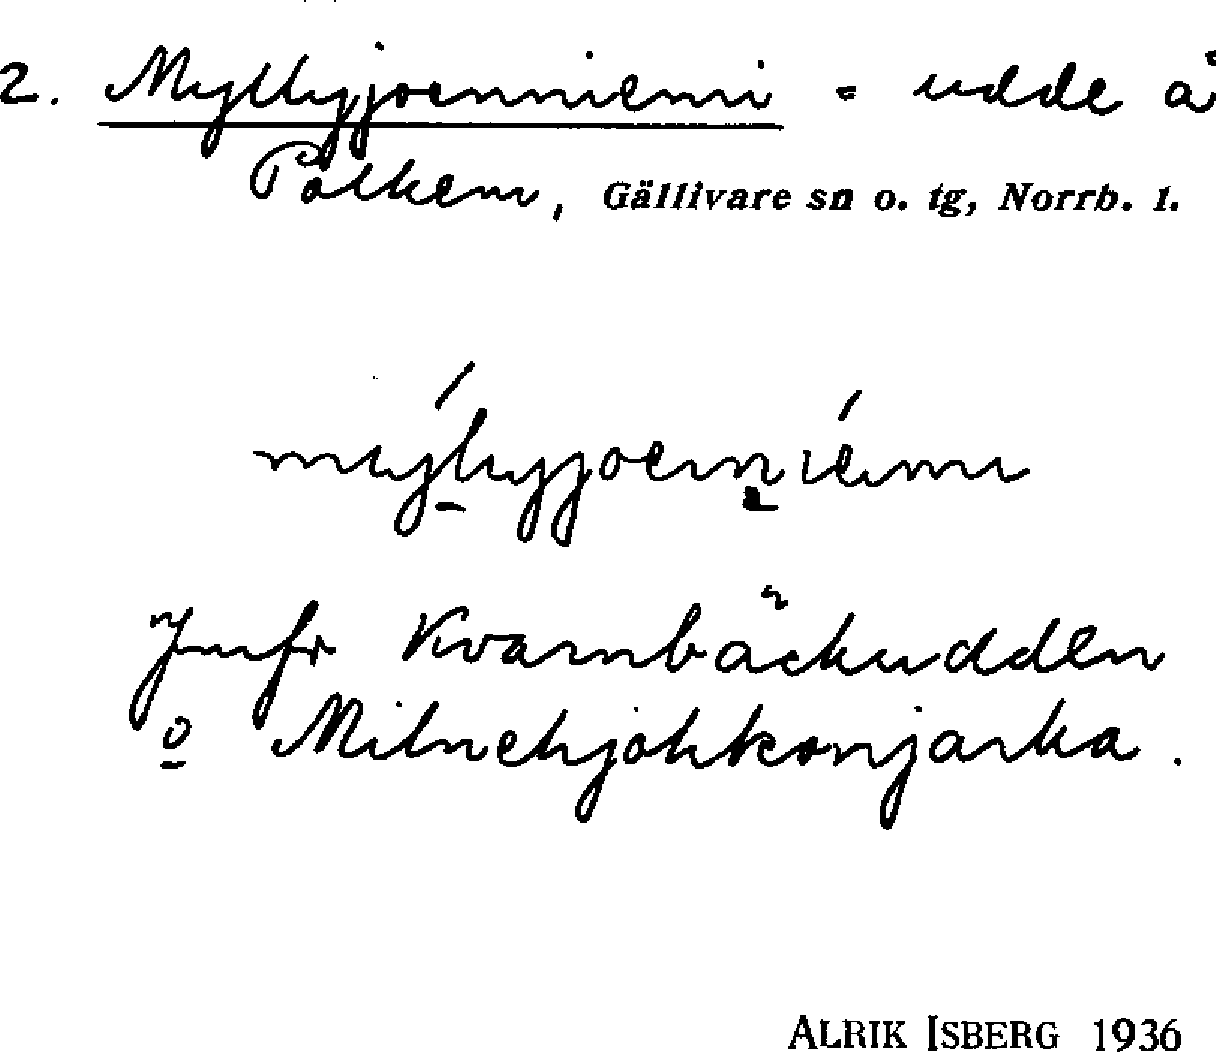 2. Myllyjoenniemi = udde å
Polkem, Gällivare sn o. tg, Norrb. l.
mýlyjoeniémi
Jmfr Kvarnbäckudden
o Milnehjohkonjarka.
ALRIK ISBERG 1936